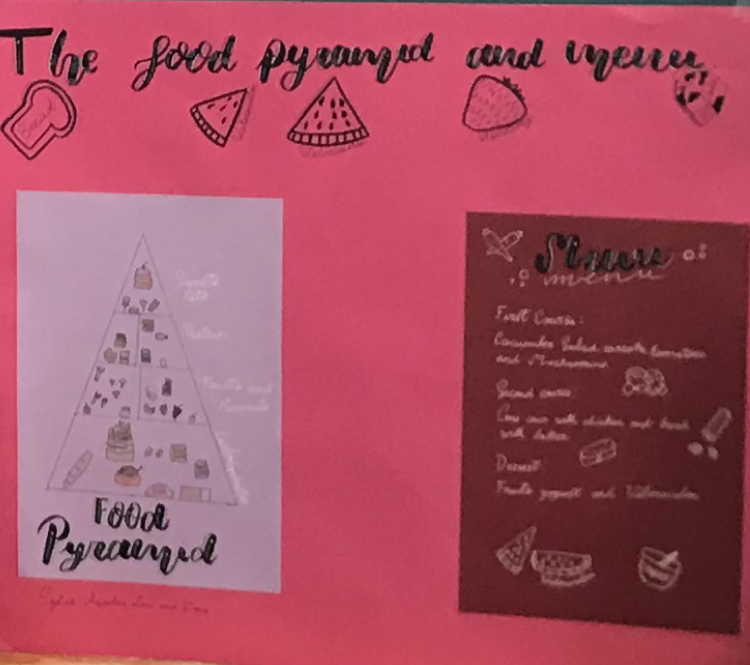 The food pyramid and menu
Bread
Watermelon
Food
Pyramid
Menu
menu
First Course:
Cucumber Salad carrots tomatoes
and Mushrooms
Second course:
Cous cous with chicken and bread
with butter
Dessert:
Fruits yogurt and Watermelon